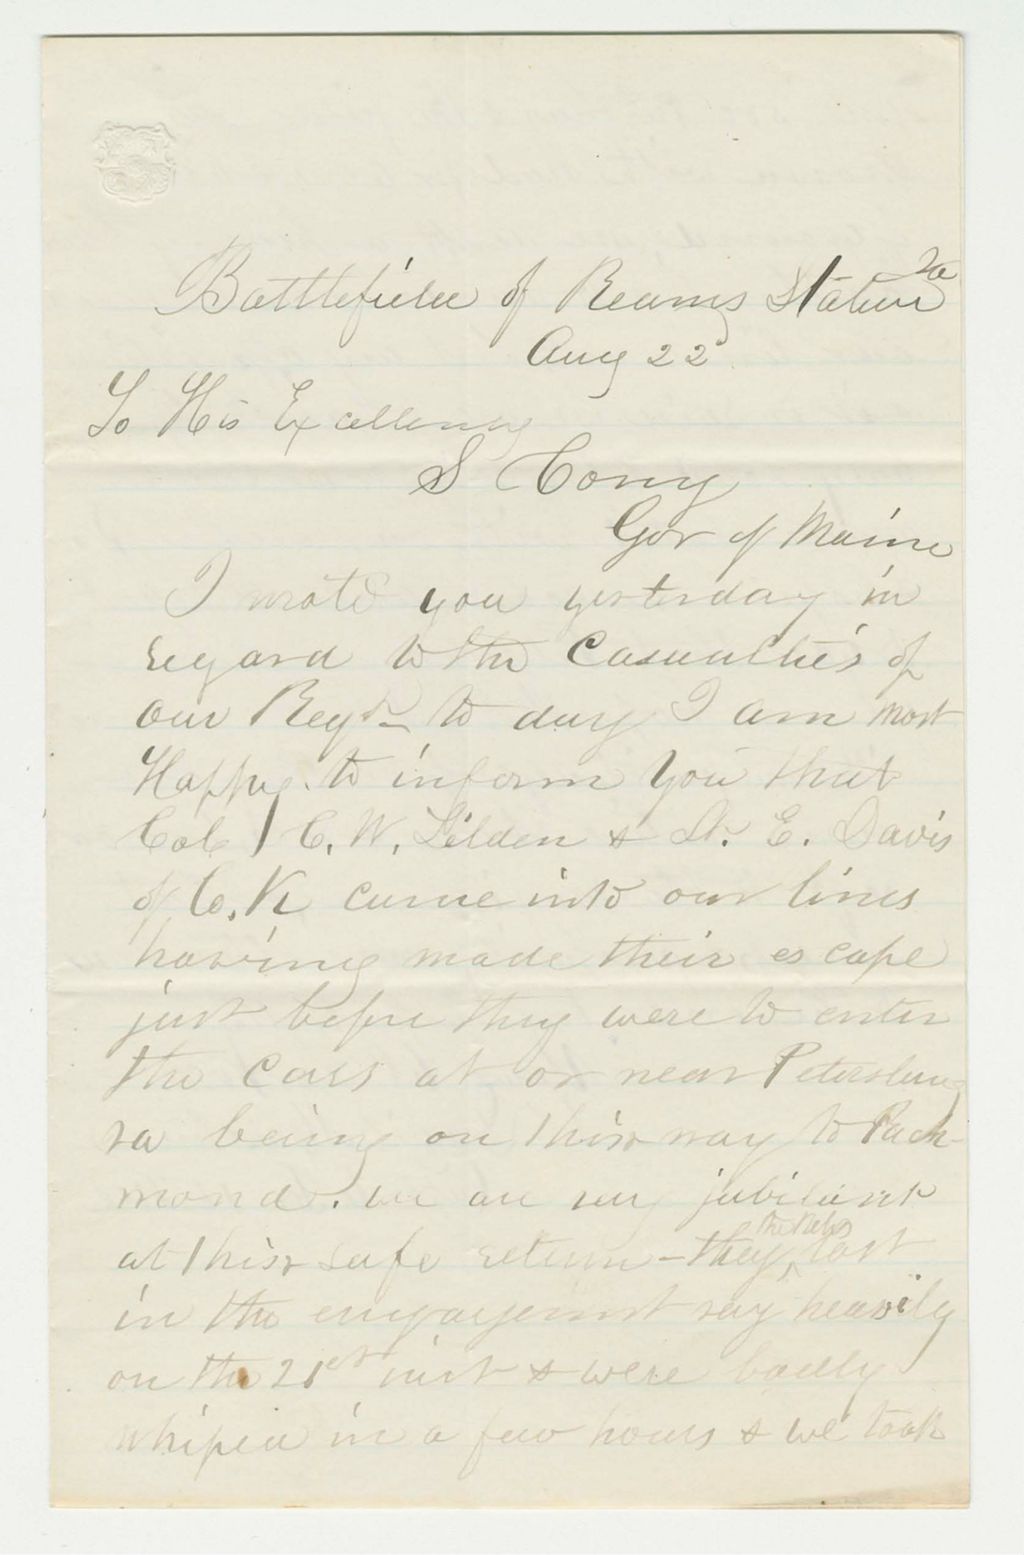 Battlefield of Reams Station Va
Aug 22
To His Excellency
S Cony
Gov of Maine
I wrote you yesterday in
regard to the Casualties of
our Regt - to day I am most
Happy to inform you that
Col C. W. Tilden & Lt. E. Davis
of Co. K came into our lines
having made their escape
just before they were to enter
the cars at or near Petersburg
va being on thier way to Rich-
mond. we are very jubilant
at thier safe return - they the Rebs lost
in the engagement very heavily
on the 21st inst & were badly
whiped in a few hours & we took